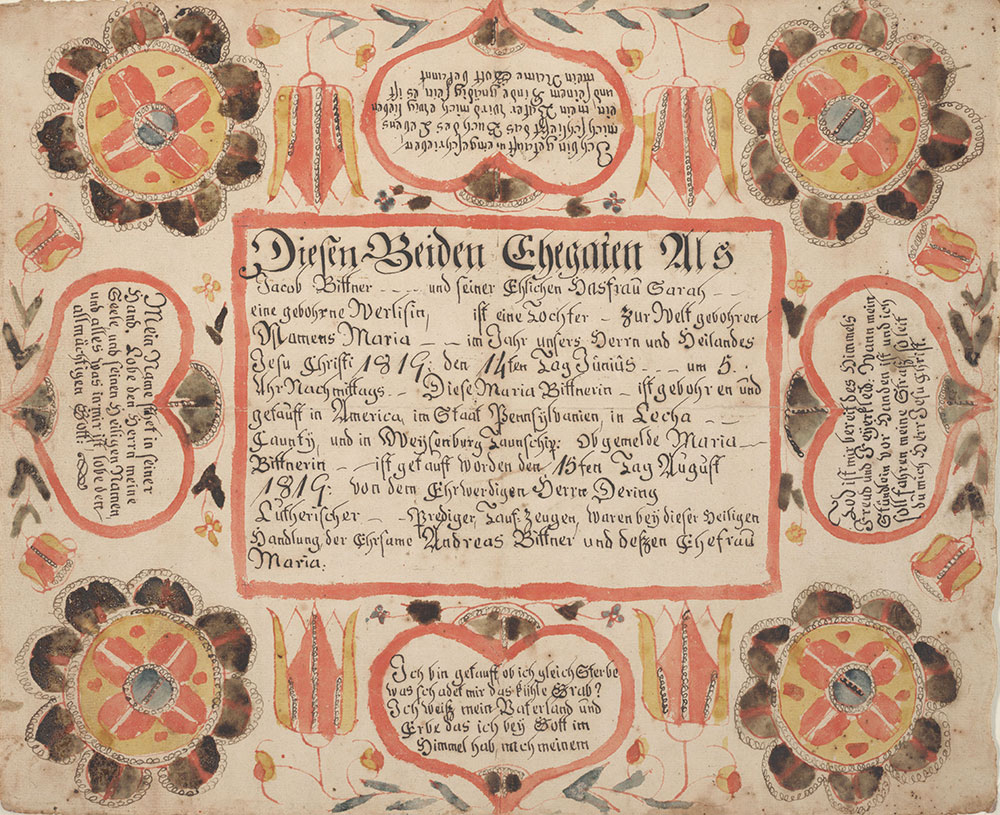 Ich bin getauft, ingeschrieben,
mich schließt das Buch des Lebens
ein mein Vater wird mich ewig lieben
und seinem Kinde gnädig sein es ist
mein Name Gott bekant
Diesen Beiden Ehegaten Als
Jacob Bittner - - - und seiner Ehlichen Hasfrau Sarah - -
eine gebohrne Werlisin, ist eine Tochter - zur Welt gebohren
Namens Maria - - im Jahr unsers Herrn und Heilandes
Jesu Christi 1819: den 14ten Tag Junius - - - um 5.
Uhr Nachmittags. - Diese Maria Bittnerin - ist gebohren und
getauft in America, im Staat Pennsylvanien, in Lecha -
Caunty, und in Weysenburg Taunschip: Obgemelde Maria -
Bittnerin - ist getauft worden den 15ten Tag August
1819: von dem Ehrwerdigen Herrn Dering
Lutherischer - - Prediger, Tauf-Zeugen, waren bey dieser Heiligen
Handlung der Ehrsame Andreas Bittner und deßen Ehefrau
Maria.
Mein Name stet in seiner
Hand. Lobe den Herrn meine
Seele, und seinen Heiligen Namen,
und alles was in mir ist, lobe den
allmächtigen Gott.
Tod ist mir bereit des Himmels
Freud und Feyerkleid. Wann mein
Stündlein vor Handen ist und ich
soll fahren meine Straß, so leit
du mich Herr Jesu Christ
Ich bin getauft ob ich gleich Sterbe
was schadet mir das kühle Grab?
Ich weiß mein Vaterland und
Erbe das ich bey Gott im
Himmel hab, nach meinem